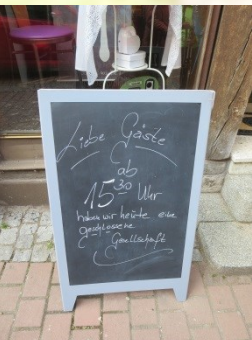 Liebe Gäste
ab
15³⁰ Uhr
haben wir heute eine
geschlossene
Gesellschaft